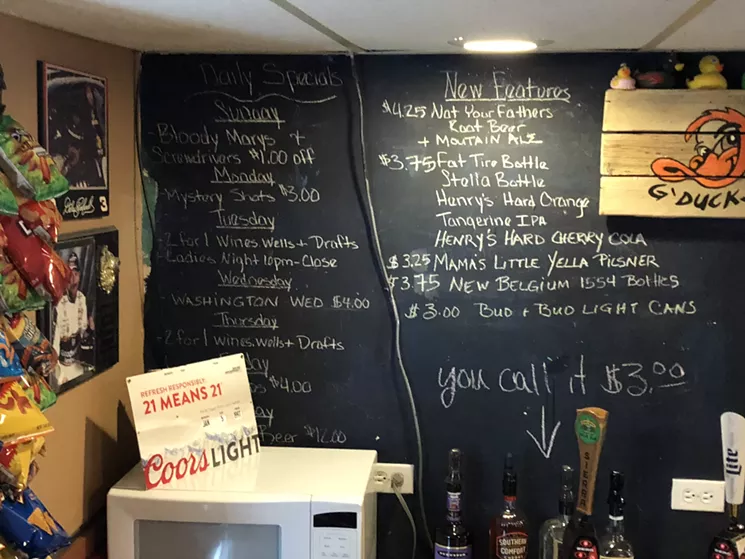 Daily Specials
Sunday
- Bloody Marys +
Screwdrivers $1.00 off
Monday
- Mystery Shots $3.00
Tuesday
- 2 for 1 Wines wells + Drafts
- Ladies Night 10pm-Close
Wednesday
- WASHINGTON WED $4.00
Thursday
- 2 for 1 wines.wells + Drafts
$4.00
Beer $12.00
New Features
$4.25 Not Your Fathers
Root Beer
+ MOUTAIN ALE
$3.75 Fat Tire Bottle
Stella Bottle
Henry's Hard Orange
Tangerine IPA
HENRY'S HARD CHERRY COLA
$3.25 MAMA'S LITTLE YELLA PILSNER
$3.75 NEW BELGIUM 1554 Bottles
$3.00 BUD + BUD LIGHT CANS
you call it $3.00
G'DUCK
REFRESH RESPONSIBLY.
21 MEANS 21
Coors LIGHT
SOUTHERN
COMFORT
SIERRA
Lite
3